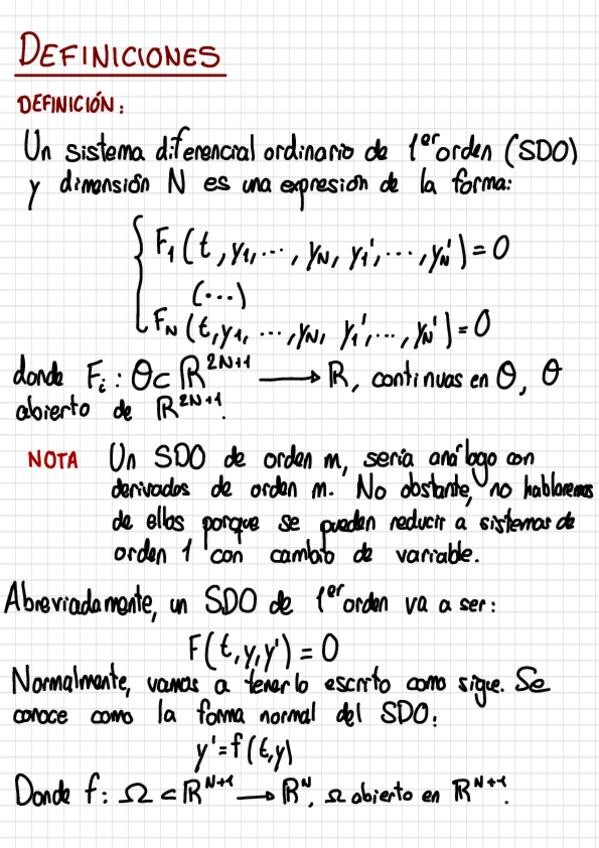 DEFINICIONES
DEFINICIÓN:
Un sistema diferencial ordinario de 1er orden (SDO)
y dimensión N es una expresión de la forma:
F₁(t, y₁, ..., yN, y₁', ..., yN') = 0
(...)
FN(t, y₁, ..., yN, y₁', ..., yN') = 0
donde Fᵢ: Θ⊂ℝ²ᴺ⁺¹ ⟶ ℝ, continuas en Θ, Θ
abierto de ℝ²ᴺ⁺¹.
NOTA Un SDO de orden m, sería análogo con
derivadas de orden m. No obstante, no hablaremos
de ellos porque se pueden reducir a sistemas de
orden 1 con cambio de variable.
Abreviadamente, un SDO de 1er orden va a ser:
F(t,y,y') = 0
Normalmente, vamos a tenerlo escrito como sigue. Se
conoce como la forma normal del SDO:
y'=f(t,y)
Donde f: Ω⊂ℝᴺ⁺¹ ⟶ ℝᴺ, Ω abierto en ℝᴺ⁺¹.